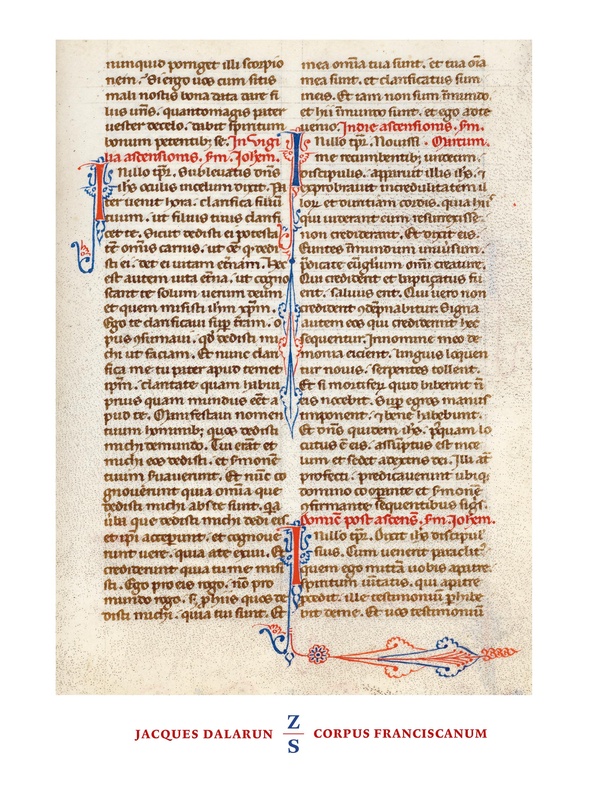 nunquid porriget illi scorpio
nem. Si ergo uos cum sitis
mali nostis bona data dare fi
liis uris. quantomagis pater
uester decelo. dabit spiritum
bonum petentib; se. In vigi
lia ascensionis. sm. Johem.
In illo tpr. Subleuatis
ihs oculis in celum dixit. Pa
ter uenit hora. clarifica filiu
tuum. ut filius tuus clarifi
cet te. Sicut dedisti ei potesta
tē omīs carnis. ut oē q̄ dedi
sti ei. det ei uitam etnam. Hec
est autem uita etna. ut cogno
scant te solum uerum deum
et quem misisti ihm xpm.
Ego te clarificaui sup tram. o
pus 9sumaui. qd dedisti mi
chi ut faciam. Et nunc clari
fica me tu pater apud temet
ipm. claritate quam habui
prius quam mundus eēt a
pud te. Manifestaui nomen
tuum hominib; quos dedisti
michi demundo. Tui erant et
michi eos dedisti. et smonē
tuum suauerunt. Et nunc co
gnouerunt quia omīa que
dedisti michi abs te sunt. qa
uba que dedisti michi dedi eis.
et ipi acceperunt. et cognoue
runt uere. quia ate exiui. Et
crediderunt quia tu me misi
sti. Ego pro eis rogo. nō pro
mundo rogo. s; p hiis quos de
disti michi. quia tui sunt. Et
mea omīa tua sunt. et tua oīa
mea sunt. et clarificatus sum
in eis. Et iam non sum i mundo.
et hii i mundo sunt. et ego ad te
uenio. In die ascensionis. sm.
In illo tpr. Nouissi Marcum.
me recumbentib; undecim
discipulis. apparuit illis ihs. 7
exprobrauit incredulitatem il
lor et duritiam cordis. quia hiis
qui uiderant eum resurrexisse
non crediderant. Et dixit eis.
Euntes i mundum uniuersum.
pdicate euglium omi creature.
Qui crediderit et baptizatus fu
erit. saluus erit. Qui uero non
crediderit 9dēpnabitur. Signa
autem eos qui crediderint hec
sequentur. In nomine meo de
monia eicient. linguis loquen
tur nouis. serpentes tollent.
Et si mortifeȝ quid biberint n̄
eis nocebit. Sup egros manus
imponent. 7 bene habebunt.
Et dns quidem ihs. pquam lo
cutus ē eis. assūptus est in ce
lum et sedet adextris dei. Illi at
profecti. predicauerunt ubiq;
domino coopante et smonē
9firmante. sequentibus sigs.
Domic post ascens. sm Johem.
In illo tpr. Dixit ihs discipul
suis. Cum uenerit paraclit
quem ego mittā uobis apatre.
spiritum uitatis. qui apatre
pcedit. ille testimonium phibe
bit deme. Et uos testimoniū
JACQUES DALARUN Z S CORPUS FRANCISCANUM